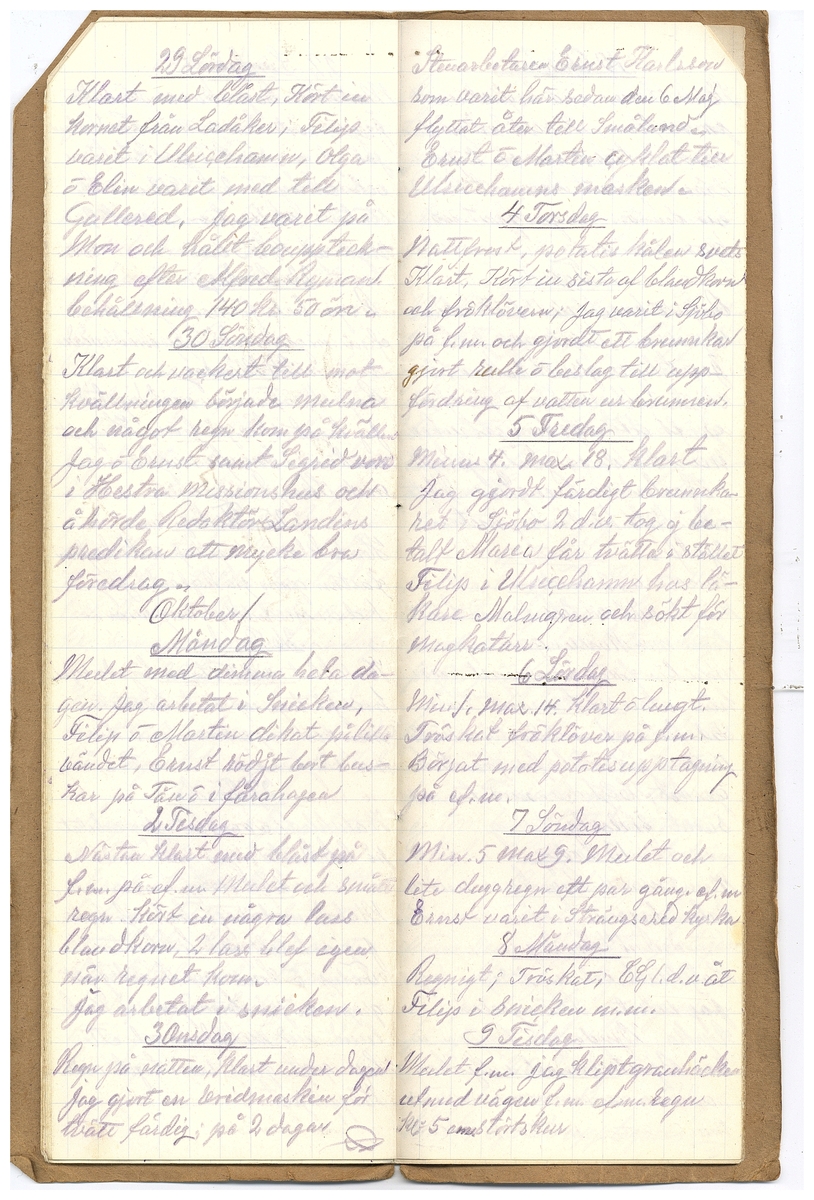 29 Lördag
Klart med blåst, Kört in
kornet från Ladåker, Filip
varit i Ulricehamn, Olga
ö Elin varit med till
Gullered, jag varit på
Mon och hålit bouppteck-
ning efter Alfred Ryman
behållning 140 kr. 50 öre.
30 Söndag
Klart och vackert till mot
kvällningen började mulna
och något regn kom på kvällen
Jag ö Ernst samt Sigrid voro
i Hestra Missionshus och
åhörde Redaktör Landins
predikan ett mycke bra
föredrag.
Oktober 1
Måndag
Mulet med dimma hela da-
gen. Jag arbetat i Snicken,
Filip ö Martin dikat på lilla
bandet, Ernst rödjt bort bus-
kar på Tån ö i fårahagen
2 Tisdag
Nästan klart med blåst på
f.m. på ef.m. Mulet och smått
regn. Kört in några lass
blandkorn, 2 lass blef egen
när regnet kom.
Jag arbetat i snicken.
3 Onsdag
Regn på natten, klart under dagen
Jag gjort en vridmaskin för
tvätt färdig; på 2 dagar
Stenarbetaren Ernst Karlsson
som varit här sedan den 6 Maj
flyttat åter till Småland.
Ernst ö Martin cyklat till
Ulricehamns marken.
4 Torsdag
Nattfrost, potatis kålen svets
Klart, Kört in sista af blandkorn
och fröklövern; Jag varit i Sjöbo
på f.m. och gjordt ett brunnkar
gjort rulle ö beslag till upp-
fordring af vatten ur brunnen.
5 Fredag
Minus 4. max 18. klart
Jag gjordt färdigt brunnka-
ret i Sjöbo 2 d.v. tog ej be-
talt Maria får tvätta i stället
Filip i Ulricehamn hos lä-
kare Malmgren och sökt för
magkatarr.
6 Lördag
Min 1. max 14. Klart ö lugt.
Tröskat fröklöver på f.m.
Börjat med potatisupptagning
på ef.m.
7 Söndag
Min. 5 max 9. Mulet och
lite duggregn ett par gång. ef.m
Ernst varit i Strängsered kyrka
8 Måndag
Regnigt; Tröskat; EG 1.d.v åt
Filip i snicken m.m.
9 Tisdag
Mulet f.m. jag klipt granhäcken
ut med vägen f.m. ef.m. regn
Kl 5 störtskur